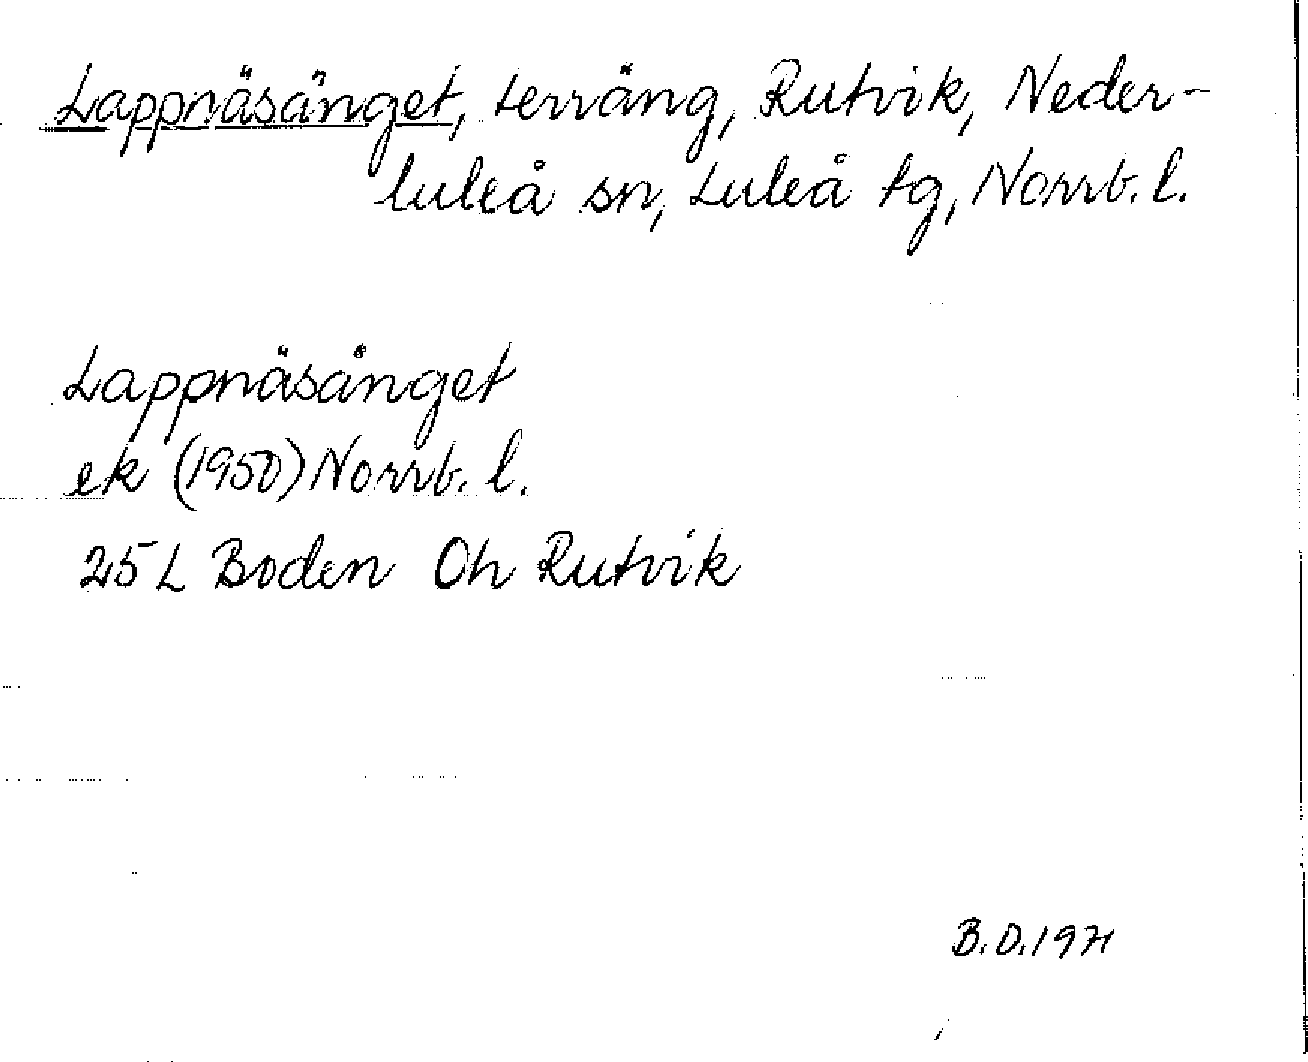 Lappnäsänget, terräng, Rutvik, Neder-
luleå sn, Luleå tg, Norrb. l.
Lappnäsänget
ek (1950) Norrb. l.
25 L Boden Oh Rutvik
B.D.1971